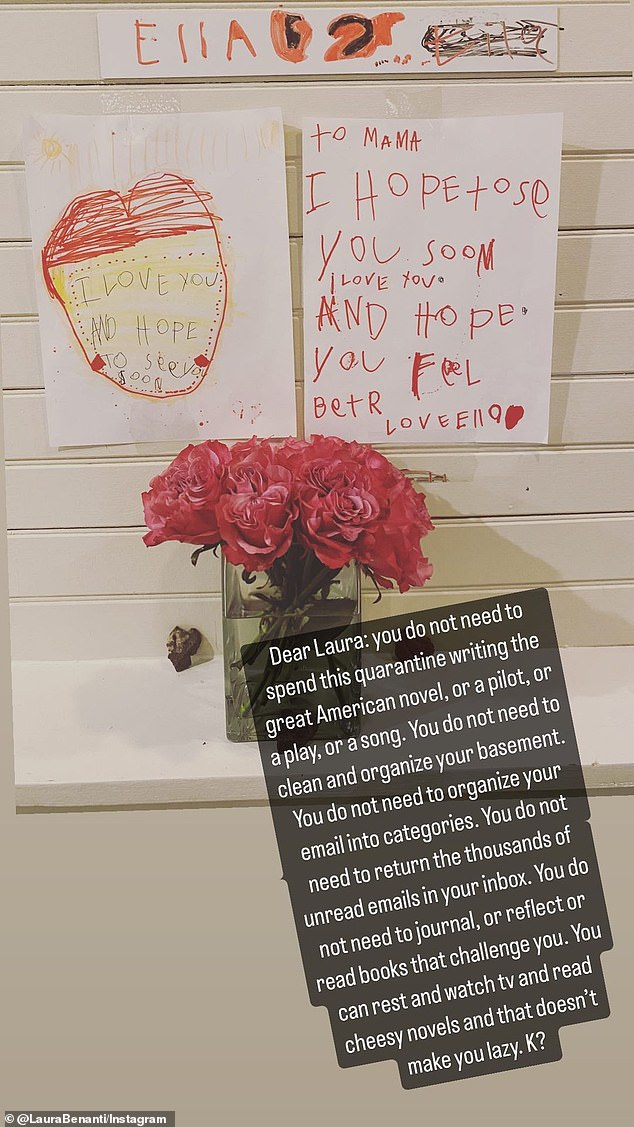 ELLA
I LOVE YOU
AND HOPE
TO SeeYo
SOON
TO MAMA
I HOPE tO Se
YOU SOON
I LOVE YOU.
AND HOPE
YOU FeeL
BetR
LOVE Ella
Dear Laura: you do not need to
spend this quarantine writing the
great American novel, or a pilot, or
a play, or a song. You do not need to
clean and organize your basement.
You do not need to organize your
email into categories. You do not
need to return the thousands of
unread emails in your inbox. You do
not need to journal, or reflect or
read books that challenge you. You
can rest and watch tv and read
cheesy novels and that doesn’t
make you lazy. K?
© @LauraBenanti/Instagram